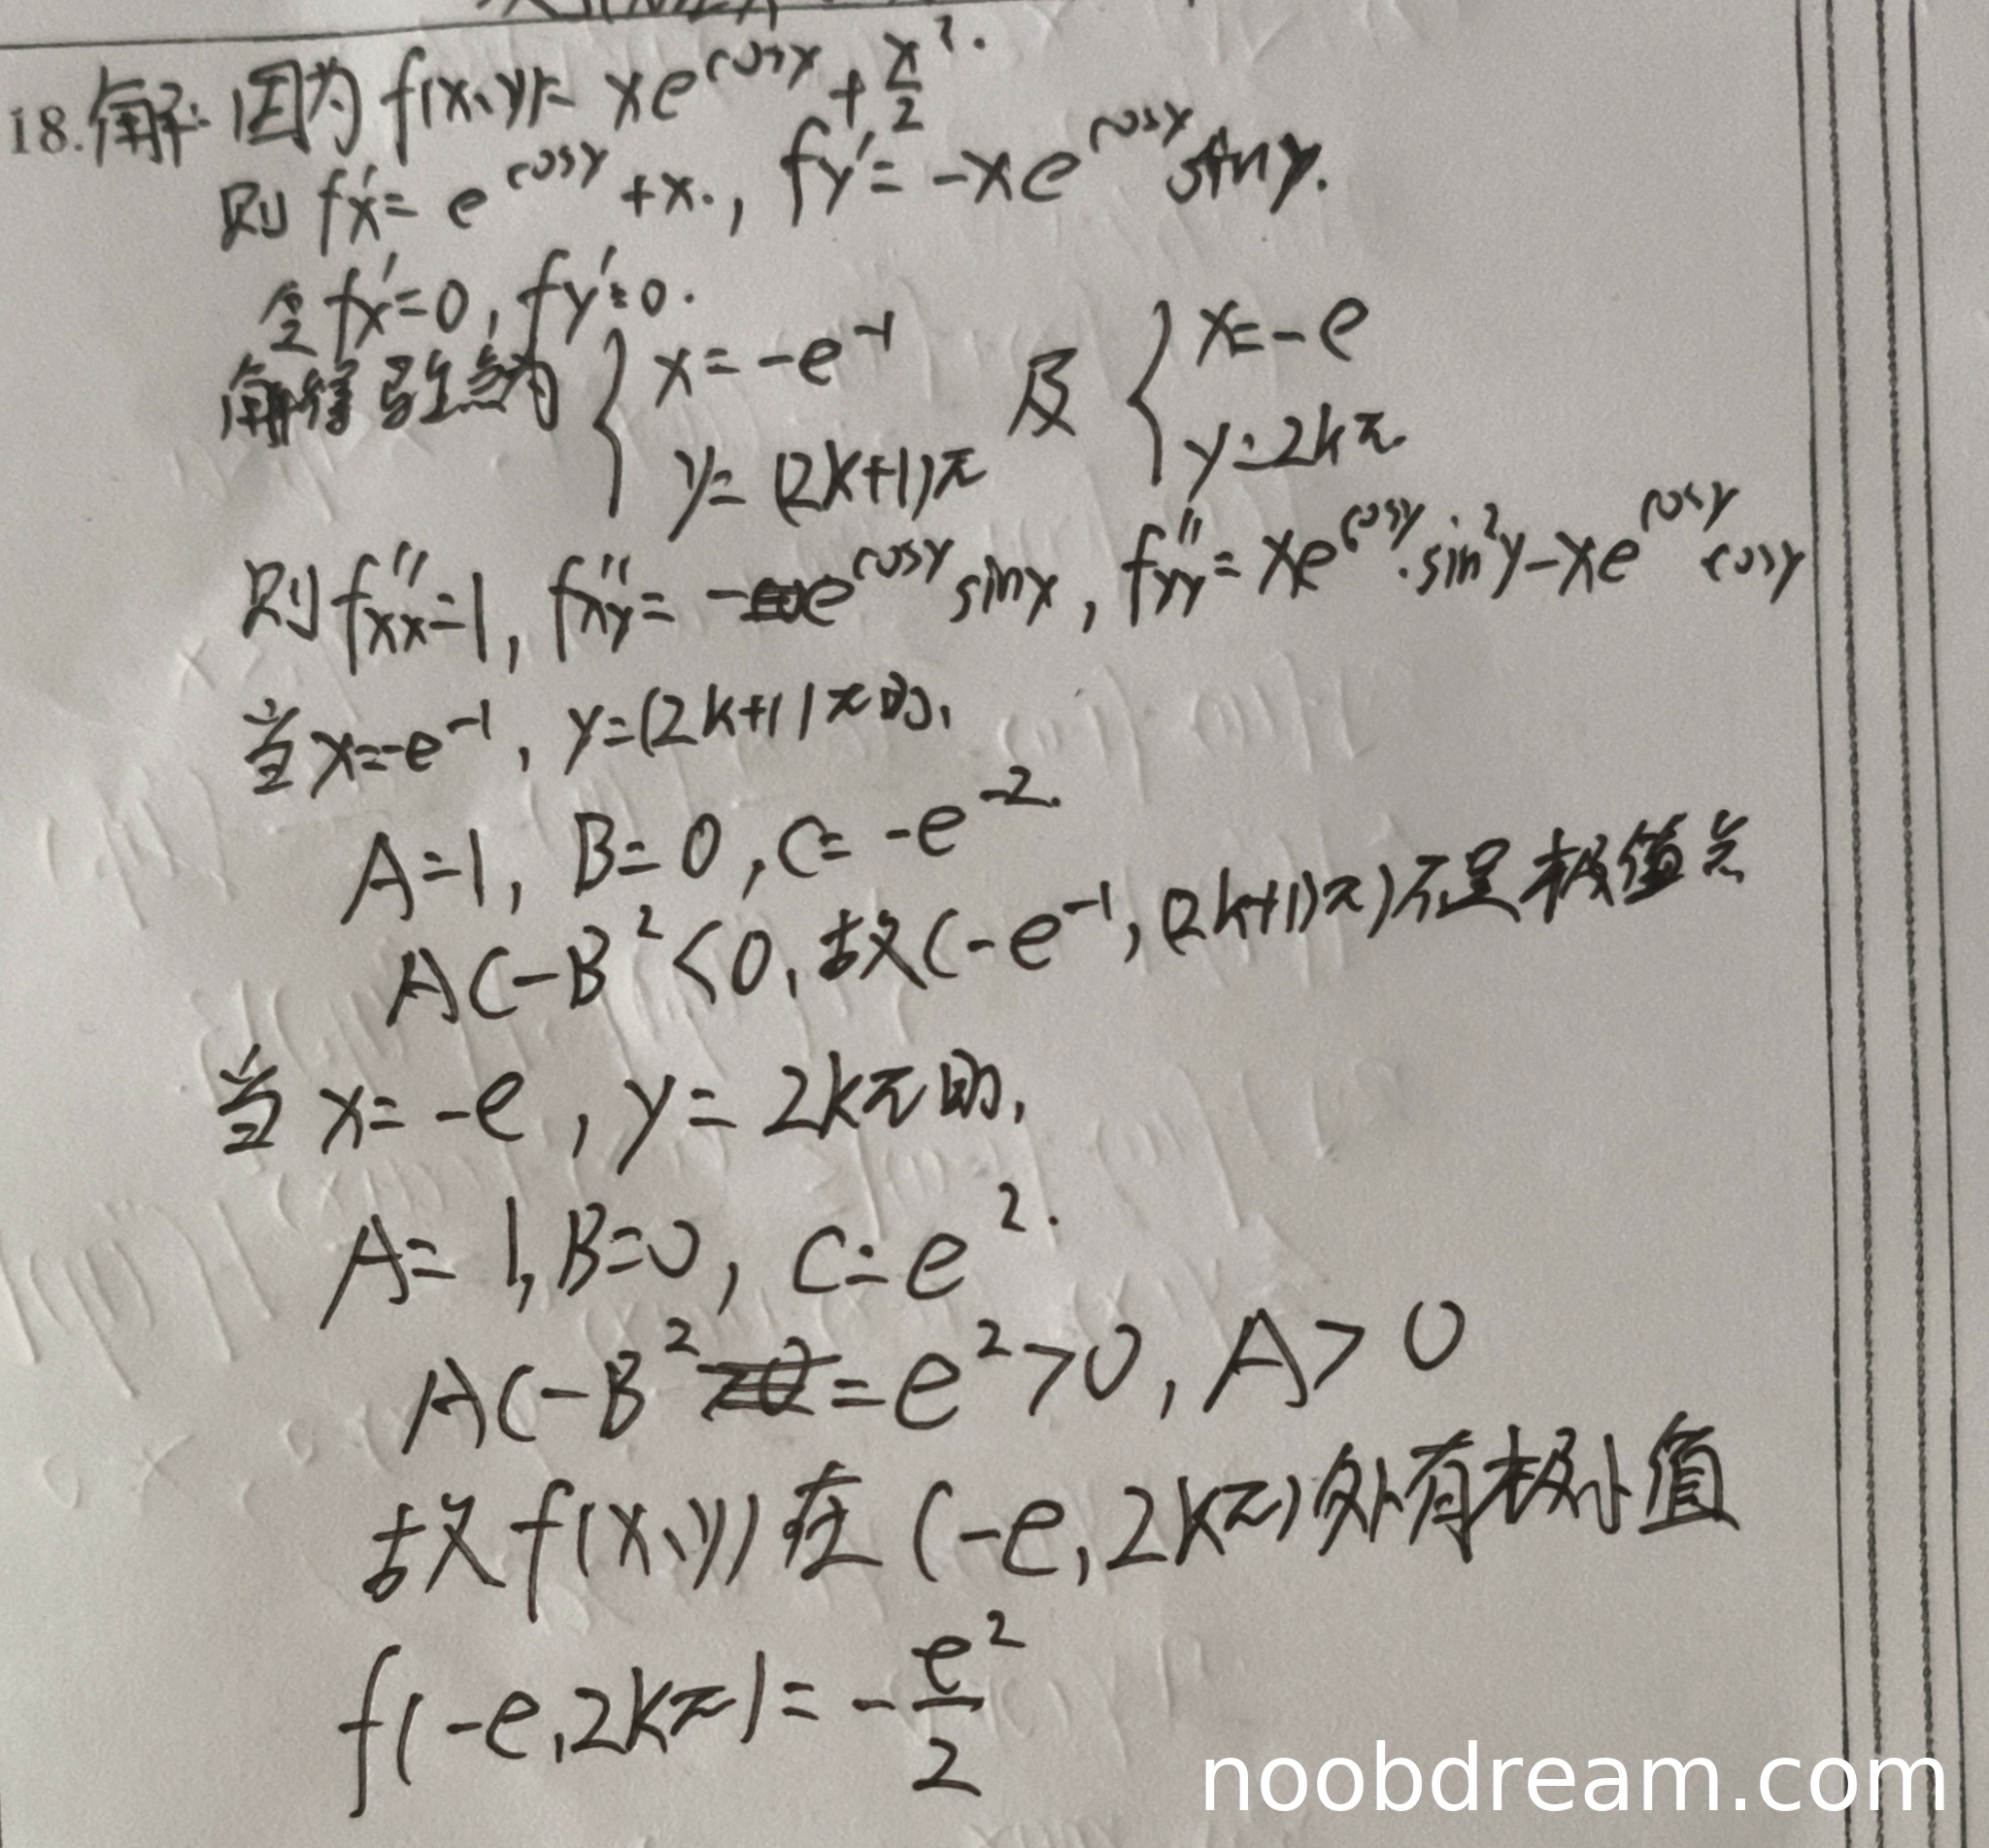 18.解: 因为 f(x,y)= xe^{cosy} + x²/2.
则 fx'= e^{cosy} +x., fy'= -xe^{cosy}siny.
令 fx'=0, fy'=0.
解得驻点为 { x= -e^{-1} y= (2k+1)π 及 { x=-e y=2kπ.
则 f''xx=1, f''xy= -e^{cosy} siny, f''yy= xe^{cosy}.sin²y-xe^{cosy}cosy
当 x=-e^{-1}, y=(2k+1)π时,
A=1, B=0, C= -e^{-2}.
AC-B²<0, 故(-e^{-1}, (2k+1)π)不是极值点
当 x= -e, y= 2kπ时,
A= 1, B=0, C=e².
AC-B²=e²>0, A>0
故 f(x,y) 在 (-e, 2kπ)处有极小值
f(-e,2kπ)= -e²/2
noobdream.com